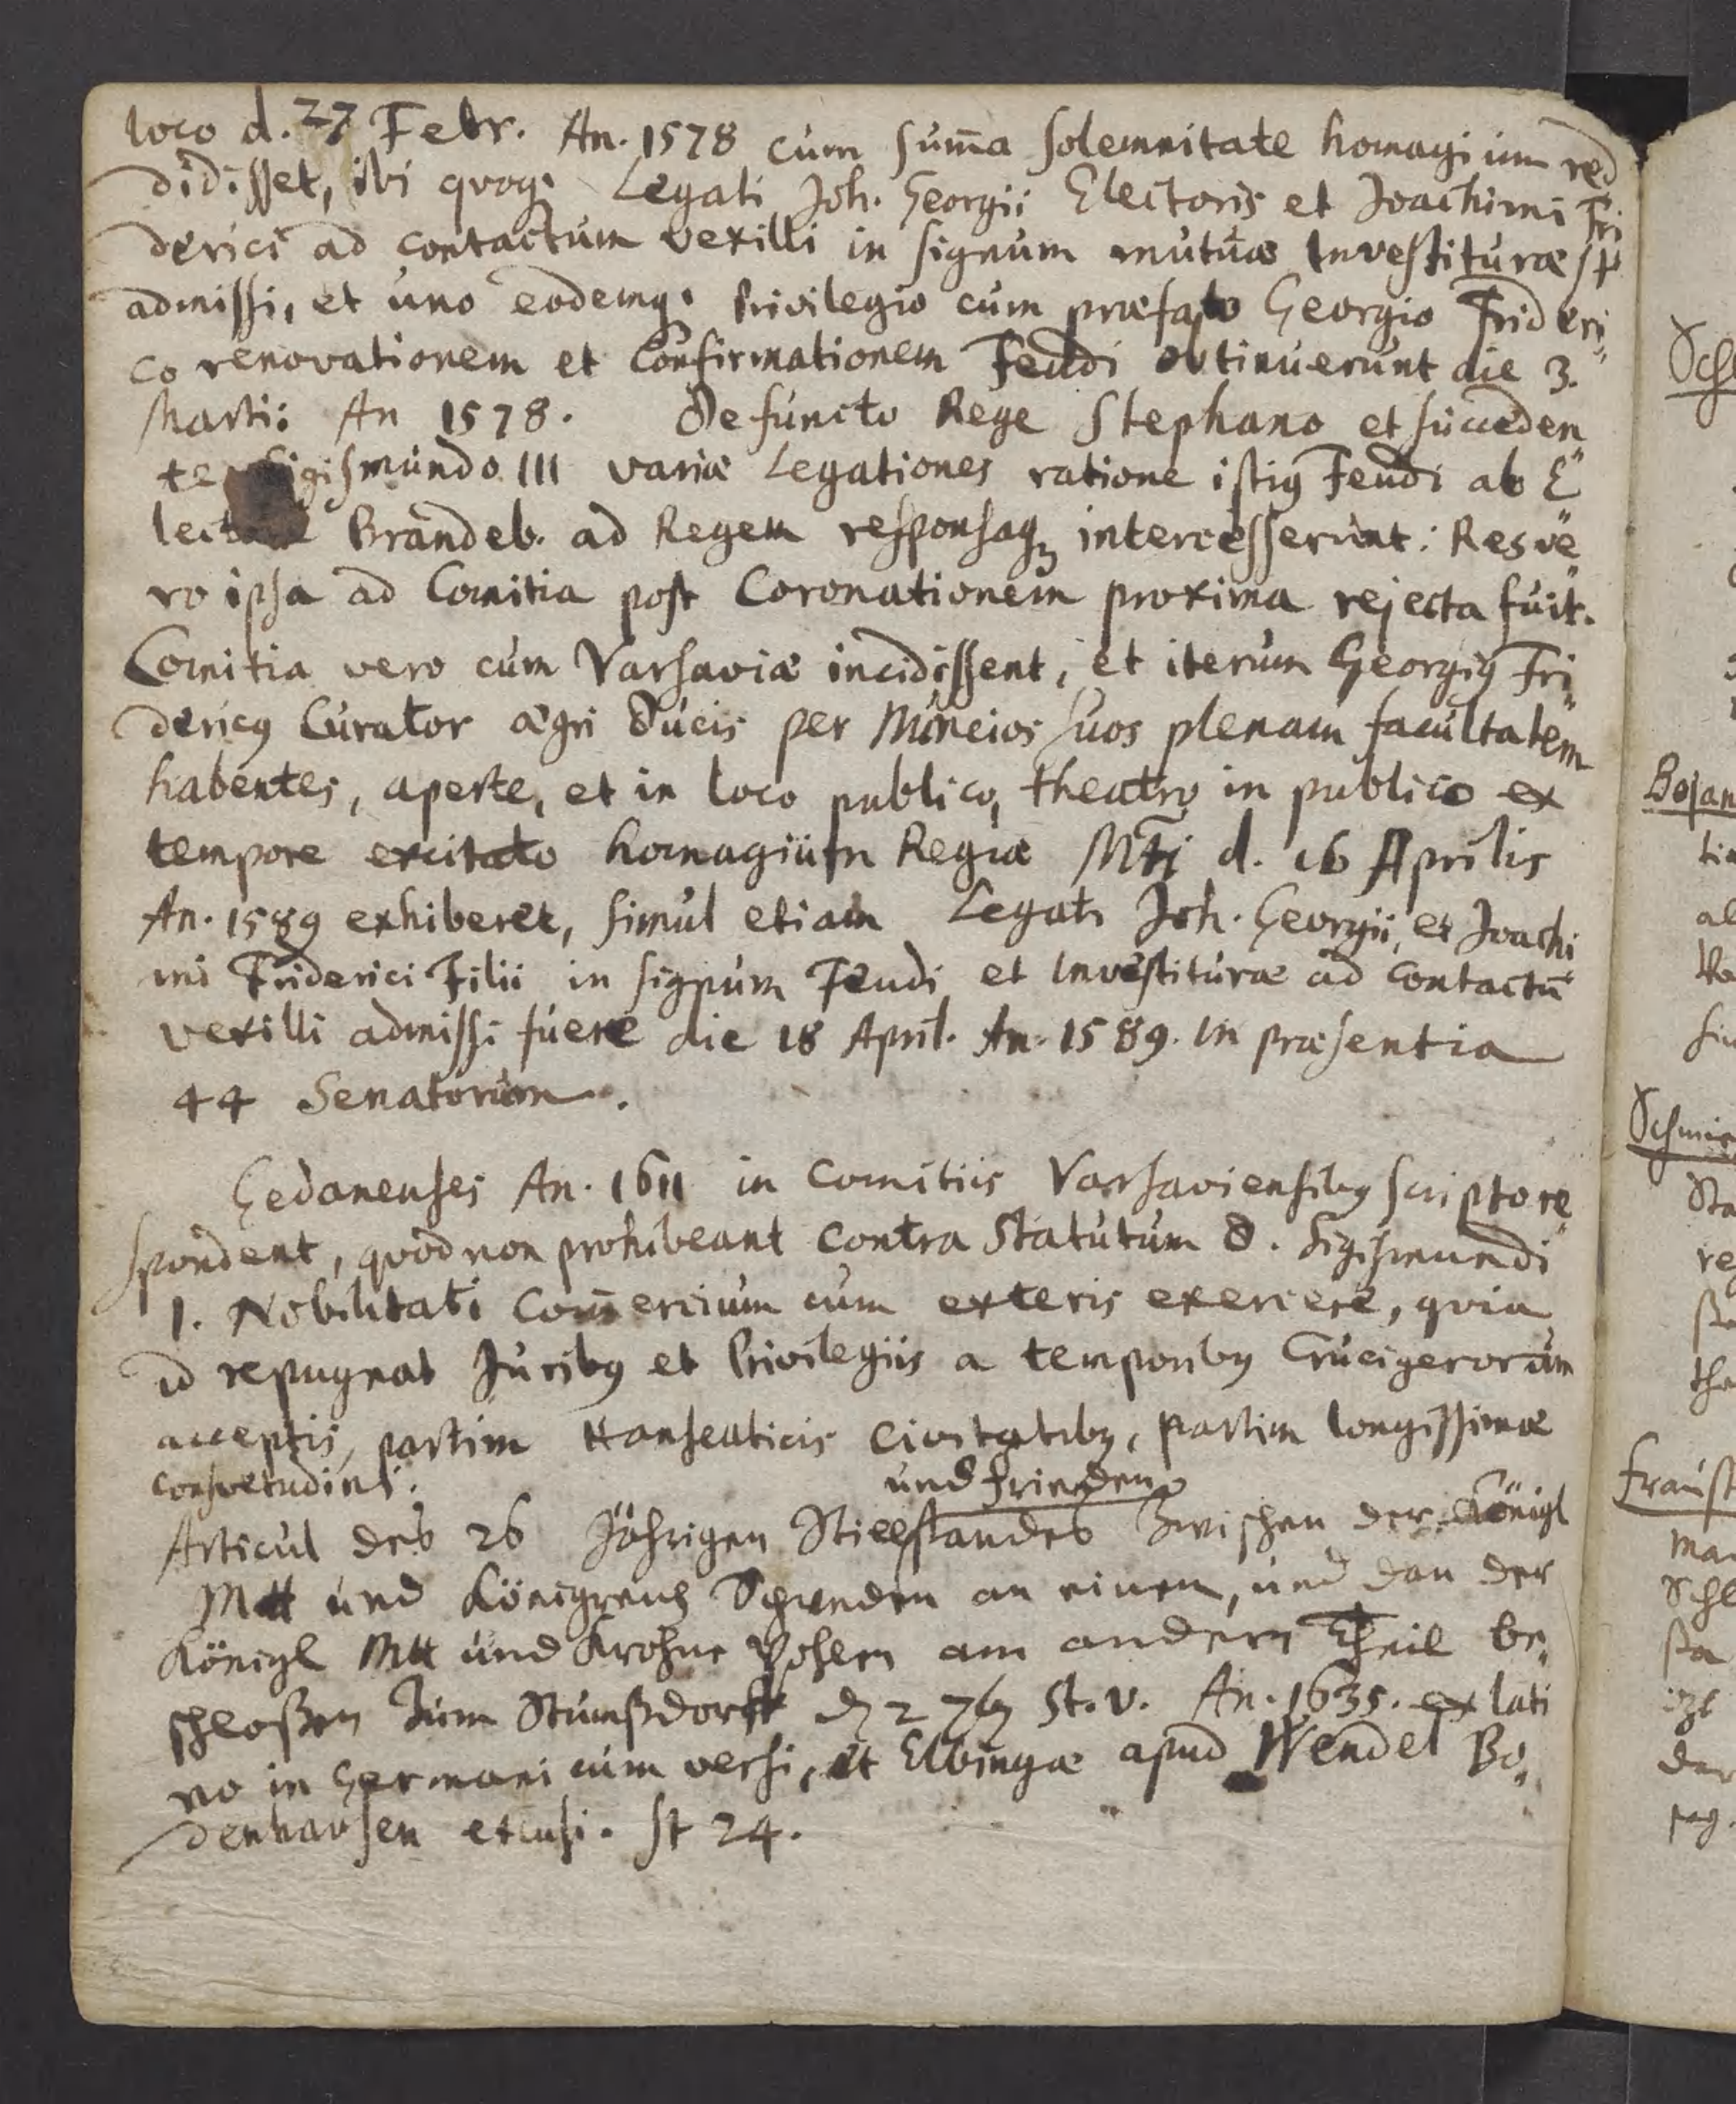 loco d. 27 Febr. An. 1578 cum sum̄a solemnitate homagium red
didisset, ibi quoq; Legati Joh. Georgii Electoris et Joachimi Fri
derici ad contactum vexilli in signum mutuæ Investituræ st
admissi, et uno eodemq; Privilegio cum præfato Georgio Frideri
co renovationem et Confirmationem Feudi obtinuerunt die 3.
Martii An 1578. Defuncto Rege Stephano et succeden
te Sigismundo III variæ Legationes ratione istiꝯ Feudi ab E
lectore Brandeb. ad Regem responsaq; intercesserunt: Res ve
ro ipsa ad Comitia post Coronationem proxima rejecta fuit.
Comitia vero cum Varsaviæ incidissent, et iterum Georgiꝯ Fri
dericꝯ Curator ægri Ducis per Nuncios suos plenam facultatem
habentes, aperte, et in loco publico, theatro in publico ex
tempore excitato homagium Regiæ Mti d. 16 Aprilis
An. 1589 exhiberet, simul etiam Legati Joh. Georgii, et Joachi
mi Friderici Filii in signum Feudi et Investituræ ad contactū
vexilli admissi fuere die 18 April. An. 1589. in præsentia
44 Senatorum.
Gedanenses An. 1611 in comitiis Varsaviensibꝯ scripto re
spondent, quod non prohibeant contra Statutum D. Sigismundi
1. Nobilitati Com̄ercium cum exteris exercere, qvia
id repugnat Juribꝯ et Privilegiis a temporibꝯ Crucigerorum
acceptis, partim Hanseaticis Civitatibꝯ, partim longissimæ
consvetudini.
und Frieden
Articul des 26 Jährigen Stillstandes Zwischen der Königl
Mtt und Königreich Schweden an einem, und dan der
Königl Mtt und Krohne Pohlen am andern Theil be
schloßen Zum Stumßdorff d 2 7bꝯ St. v. An. 1635. ex lati
no in Germanicum versi, et Elbingæ apud Wendel Bo
denhausen excusi. st 24.